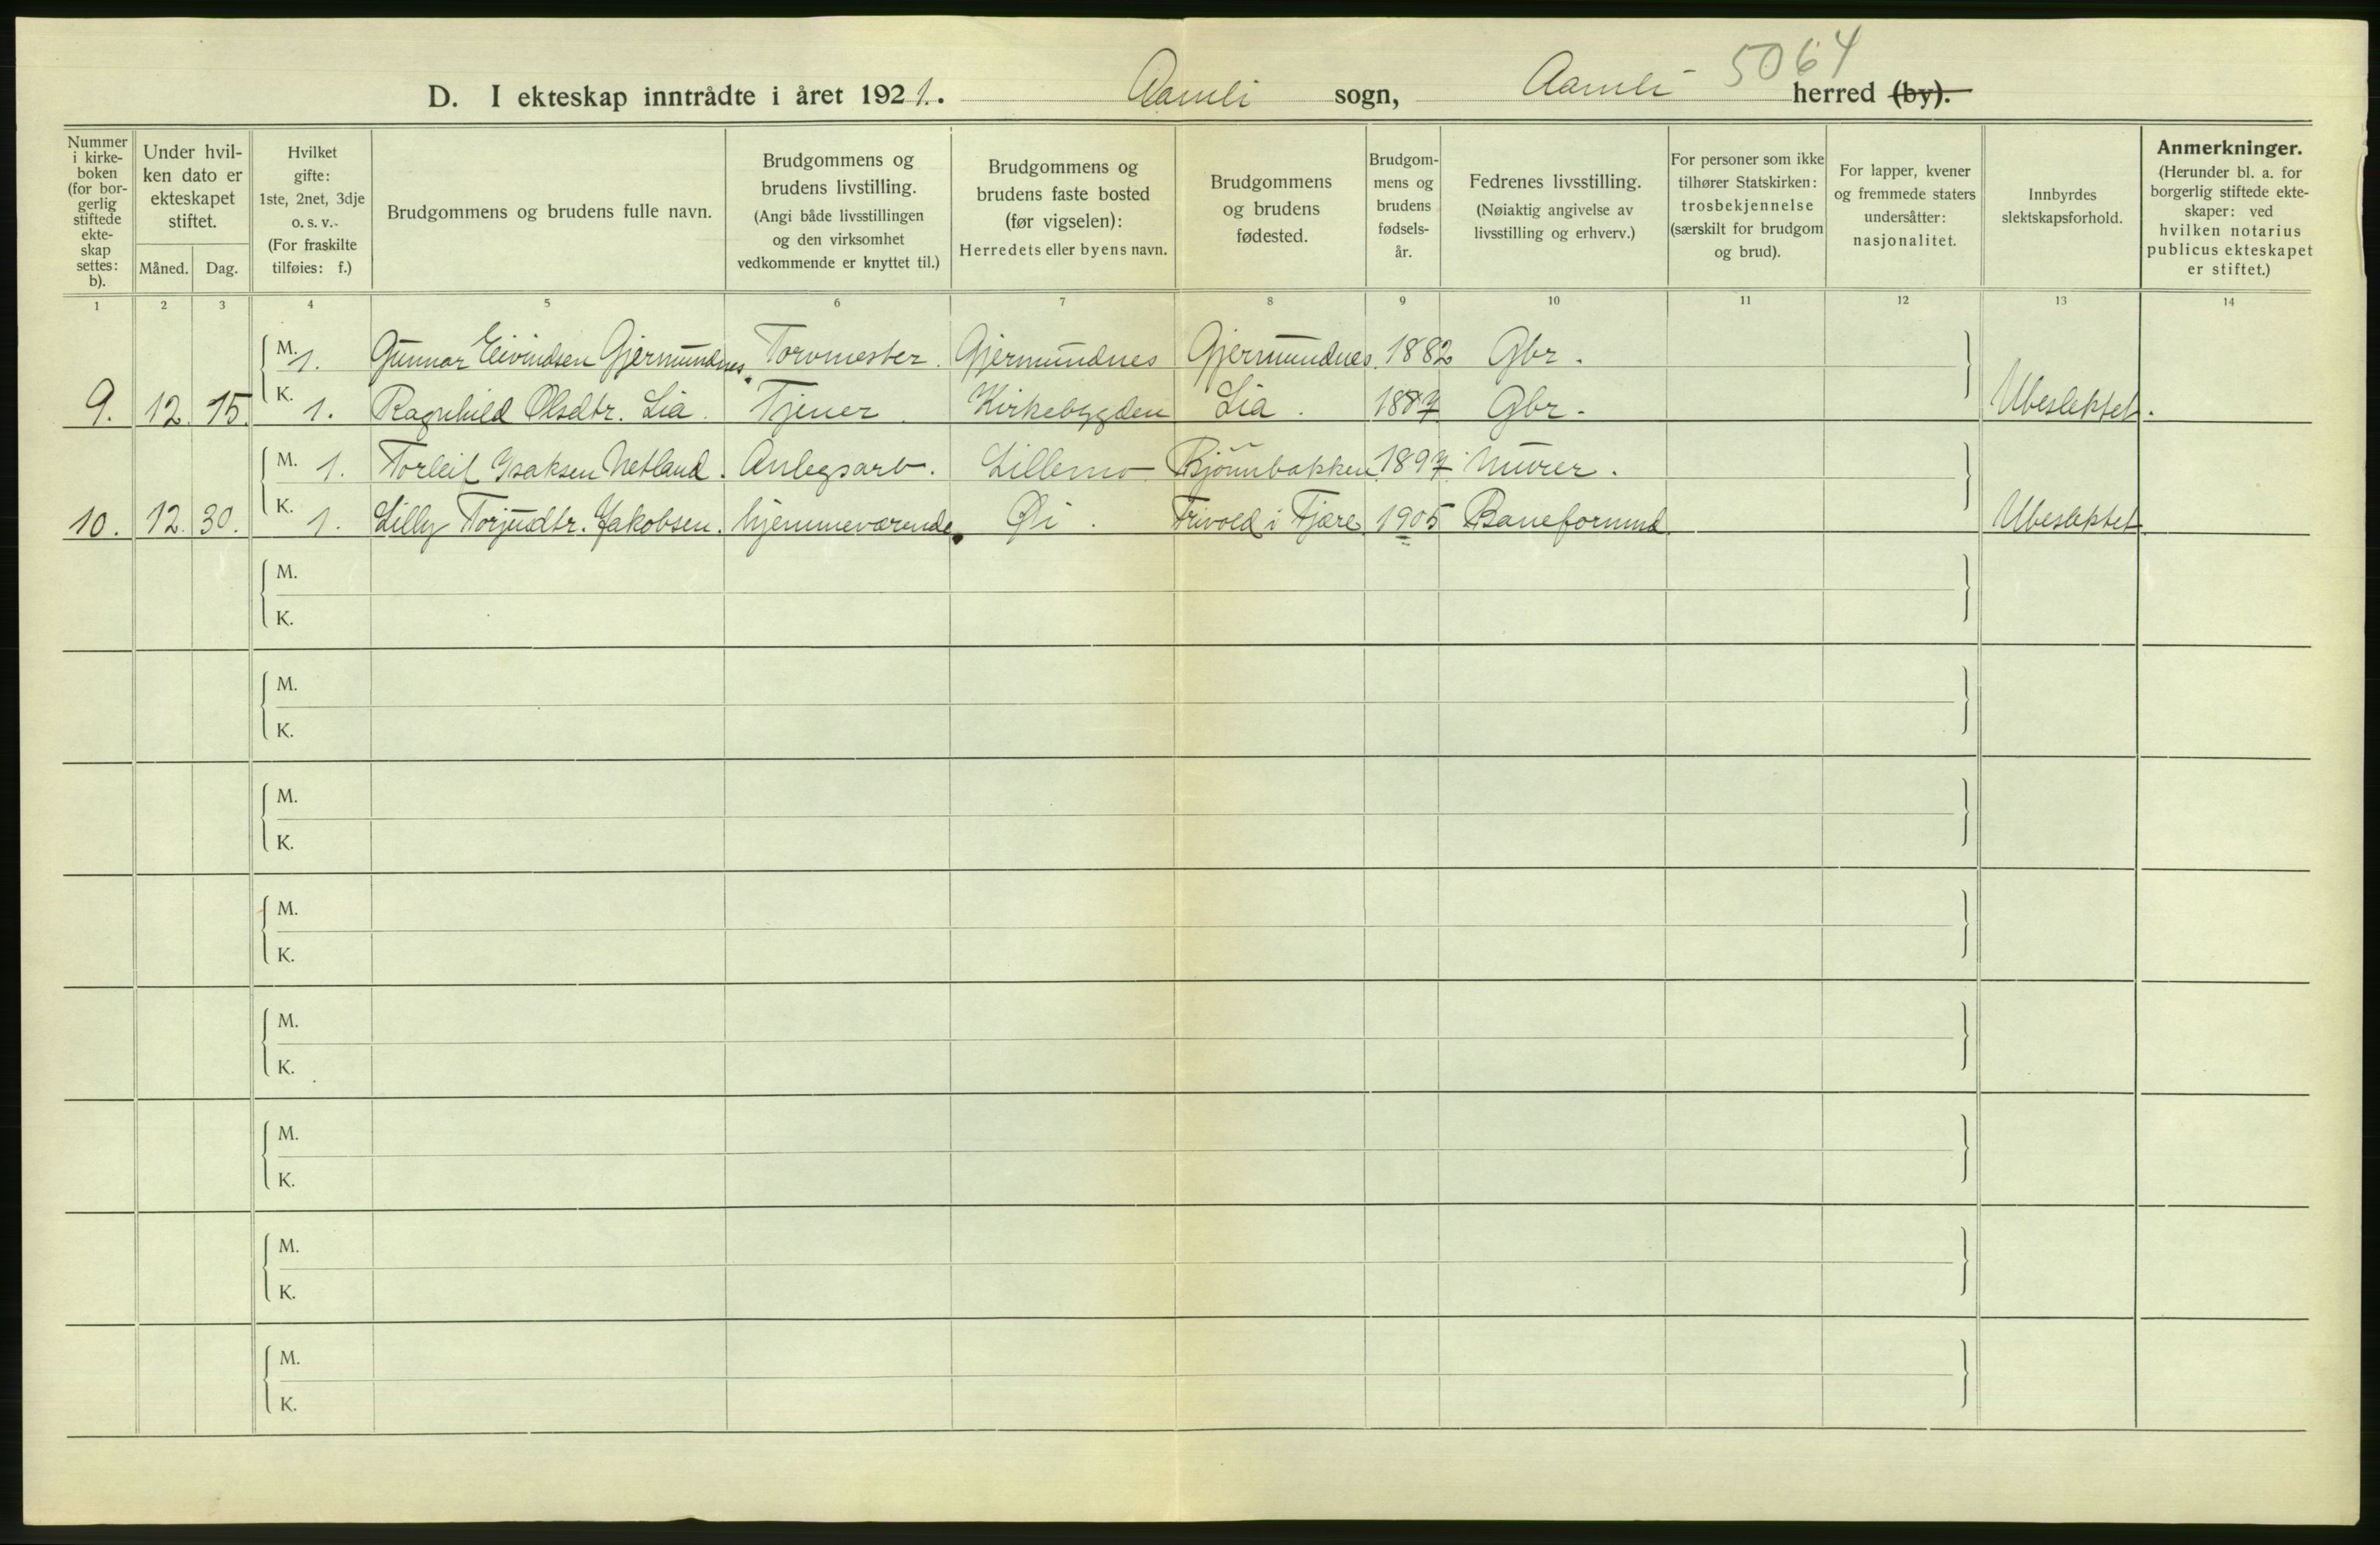 5064
D. I ekteskap inntrådte i året 1921. Aamli sogn, Aamli herred (by).
Nummer i kirke-boken (for bor-gerlig stiftede ekte-skap settes: b).
Under hvil-ken dato er ekteskapet stiftet.
Måned. Dag.
Hvilket gifte: 1ste, 2net, 3dje o. s. v. (For fraskilte tilføies: f.)
Brudgommens og brudens fulle navn.
Brudgommens og brudens livstilling. (Angi både livsstillingen og den virksomhet vedkommende er knyttet til.)
Brudgommens og brudens faste bosted (før vigselen): Herredets eller byens navn.
Brudgommens og brudens fødested.
Brudgom-mens og brudens fødsels-år.
Fedrenes livsstilling. (Nøiaktig angivelse av livsstilling og erhverv.)
For personer som ikke tilhører Statskirken: trosbekjennelse (særskilt for brudgom og brud).
For lapper, kvener og fremmede staters undersåtter: nasjonalitet.
Innbyrdes slektskapsforhold.
Anmerkninger. (Herunder bl. a. for borgerlig stiftede ekte-skaper: ved hvilken notarius publicus ekteskapet er stiftet.)
1 2 3 4 5 6 7 8 9 10 11 12 13 14
M. 1. Gunnar Eivindsen Gjermundnes. Torvmester. Gjermundnes Gjermundnes. 1882 Gbr.
9. 12. 15. K. 1. Ragnhild Olsdtr. Lia. Tjener. Kirkebygden Lia. 1887 Gbr. Ubeslektet.
M. 1. Torleif Isaksen Netland. Anlegsarb. Lillemo Bjönnbakken. 1897. Murer.
10. 12. 30. K. 1. Lilly Torjusdtr. Jakobsen. hjemmeværende. Øi. Frivold i Fjære. 1905 Baneformnd. Ubeslektet.
M.
K.
M.
K.
M.
K.
M.
K.
M.
K.
M.
K.
M.
K.
M.
K.